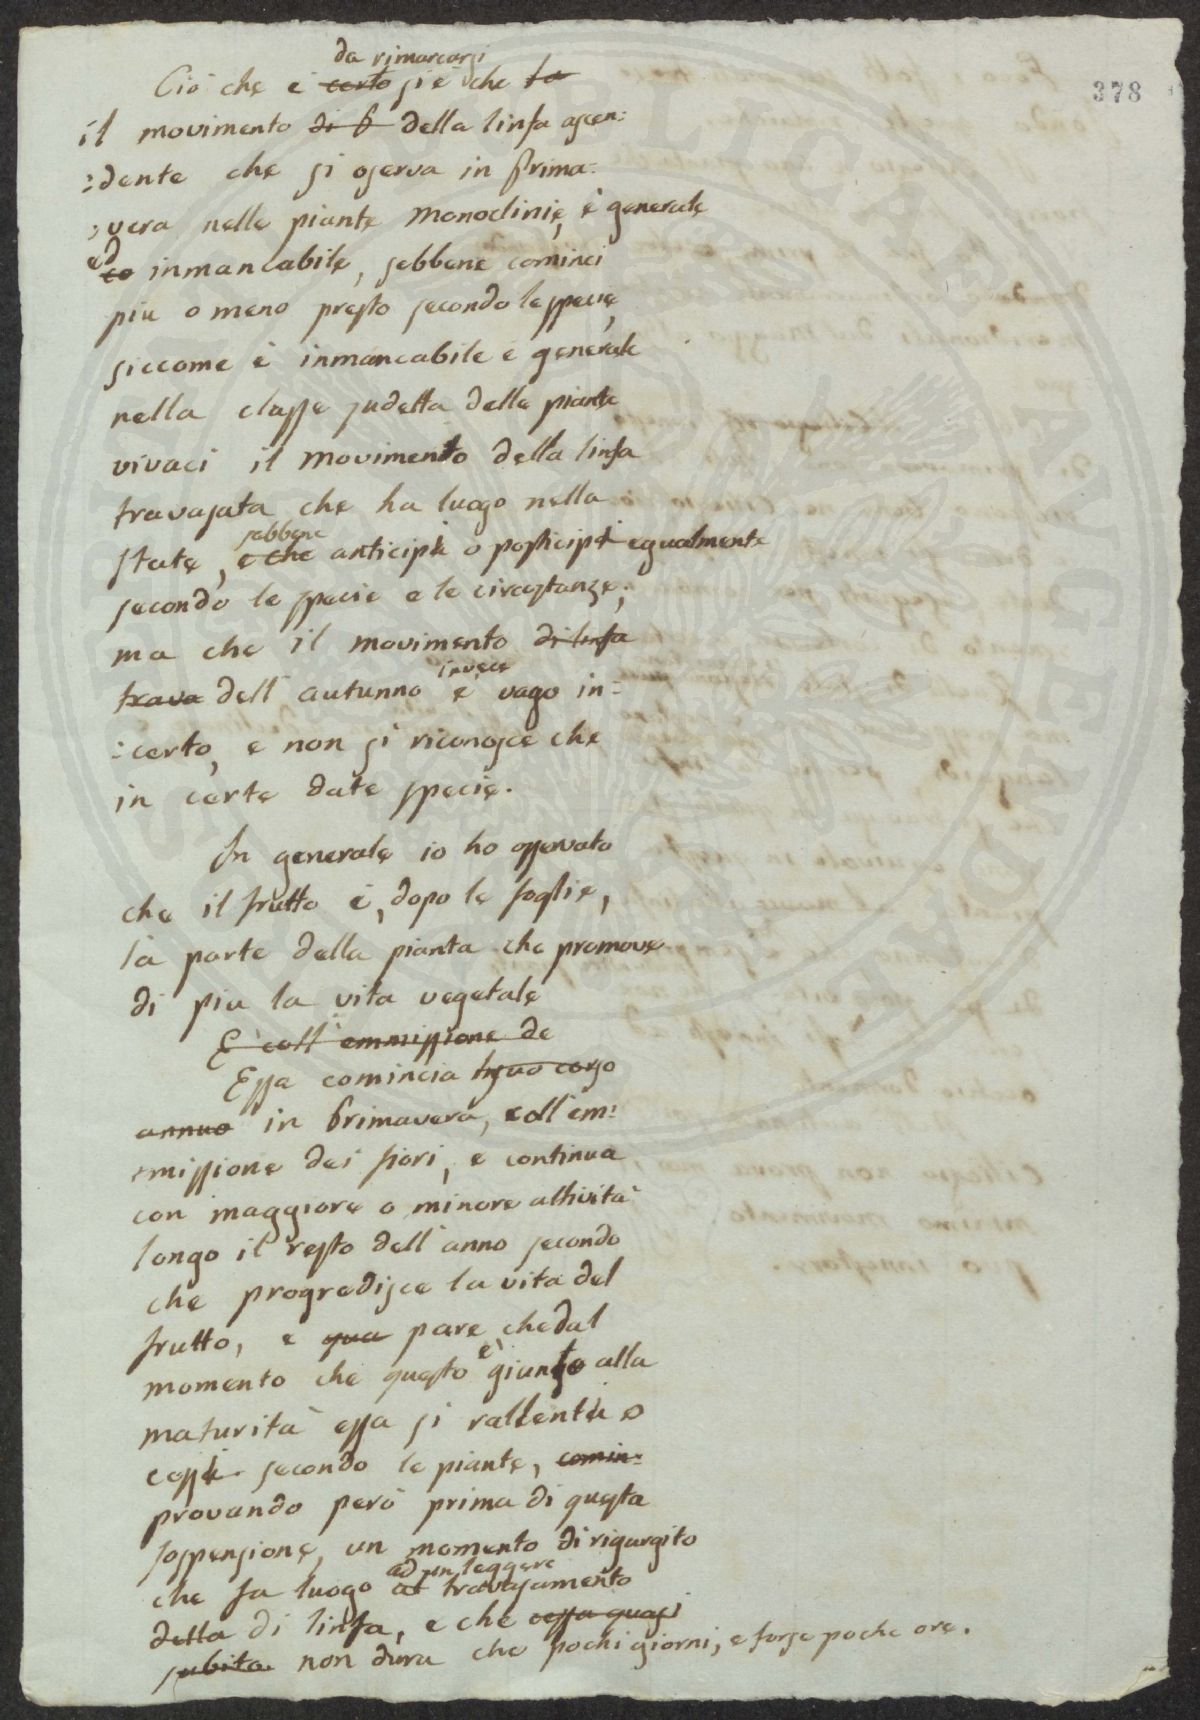 378
da rimarcarsi
Ciò che è certo si è che la
il movimento di p della linfa ascen:
:dente che si oserva in Prima:
:vera nelle piante Monoclinie, è generale
ed
co inmancabile, sebbene cominci
piu o meno presto secondo le specie,
siccome è inmancabile e generale
nella classe sudetta delle piante
vivaci il movimento della linfa
travasata che ha luogo nella
sebbene
state, e che anticipi o posticipi egualmente
secondo le specie e le circostanze;
ma che il movimento di linfa
invece
trava dell' autunno è vago in:
:certo, e non si riconosce che
in certe date specie.
In generale io ho osservato
che il frutto è, dopo le foglie,
la parte della pianta che promove
di piu la vita vegetale
E coll' emmissione de
Essa comincia il suo corso
annuo in Primavera, coll' em:
:missione dei fiori, e continua
con maggiore o minore attività
longo il resto dell' anno secondo
che progredisce la vita del
frutto, e qua pare che dal
è
momento che questo giunto alla
maturità essa si rallenti o
cessi secondo le piante, comin:
provando però prima di questa
sospensione, un momento di rigurgito
ad un leggere
che fa luogo al travasamento
della di linfa, e che cessa quasi
subito non dura che pochi giorni, e forse poche ore.